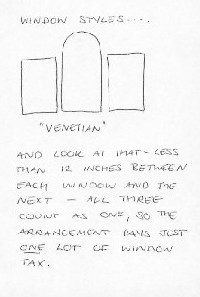 WINDOW STYLES....
"VENETIAN"
AND LOOK AT THAT - LESS
THAN 12 INCHES BETWEEN
EACH WINDOW AND THE
NEXT - ALL THREE
COUNT AS ONE, SO THE
ARRANGEMENT PAYS JUST
ONE LOT OF WINDOW
TAX.